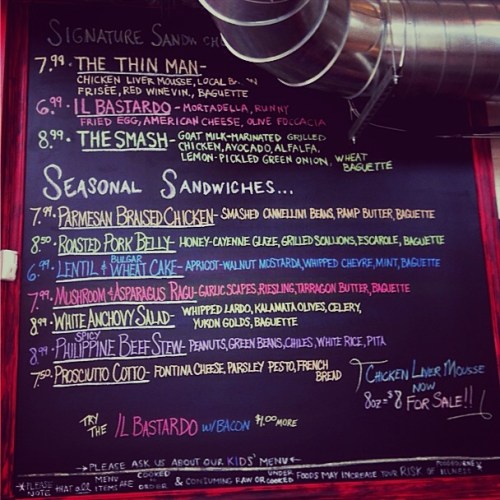 SIGNATURE SANDWICH
7.99 · THE THIN MAN -
CHICKEN LIVER MOUSSE, LOCAL
FRISÉE, RED WINE VIN., BAGUETTE
6.99 · IL BASTARDO - MORTADELLA, RUNNY
FRIED EGG, AMERICAN CHEESE, OLIVE FOCCACIA
8.99 · THE SMASH - GOAT MILK-MARINATED GRILLED
CHICKEN, AVOCADO, ALFALFA,
LEMON-PICKLED GREEN ONION, WHEAT
BAGUETTE
SEASONAL SANDWICHES...
7.99 · PARMESAN BRAISED CHICKEN - SMASHED CANNELLINI BEANS, RAMP BUTTER, BAGUETTE
8.50 · ROASTED PORK BELLY - HONEY-CAYENNE GLAZE, GRILLED SCALLIONS, ESCAROLE, BAGUETTE
6.99 · LENTIL & BULGAR WHEAT CAKE - APRICOT-WALNUT MOSTARDA, WHIPPED CHEVRE, MINT, BAGUETTE
7.99 · MUSHROOM & ASPARAGUS RAGU - GARLIC SCAPES, RIESLING, TARRAGON BUTTER, BAGUETTE
8.99 · WHITE ANCHOVY SALAD - WHIPPED LARDO, KALAMATA OLIVES, CELERY,
YUKON GOLDS, BAGUETTE
8.99 · SPICY PHILIPPINE BEEF STEW - PEANUTS, GREEN BEANS, CHILES, WHITE RICE, PITA
7.50 · PROSCIUTTO COTTO - FONTINA CHEESE, PARSLEY PESTO, FRENCH
BREAD
CHICKEN LIVER MOUSSE
NOW
8oz = $8 FOR SALE!!
TRY THE IL BASTARDO W/ BACON $1.00 MORE
→ PLEASE ASK US ABOUT OUR KIDS' MENU ←
*PLEASE NOTE THAT OUR MENU ITEMS ARE COOKED TO ORDER & CONSUMING RAW OR UNDER COOKED FOODS MAY INCREASE YOUR RISK OF ILLNESS*